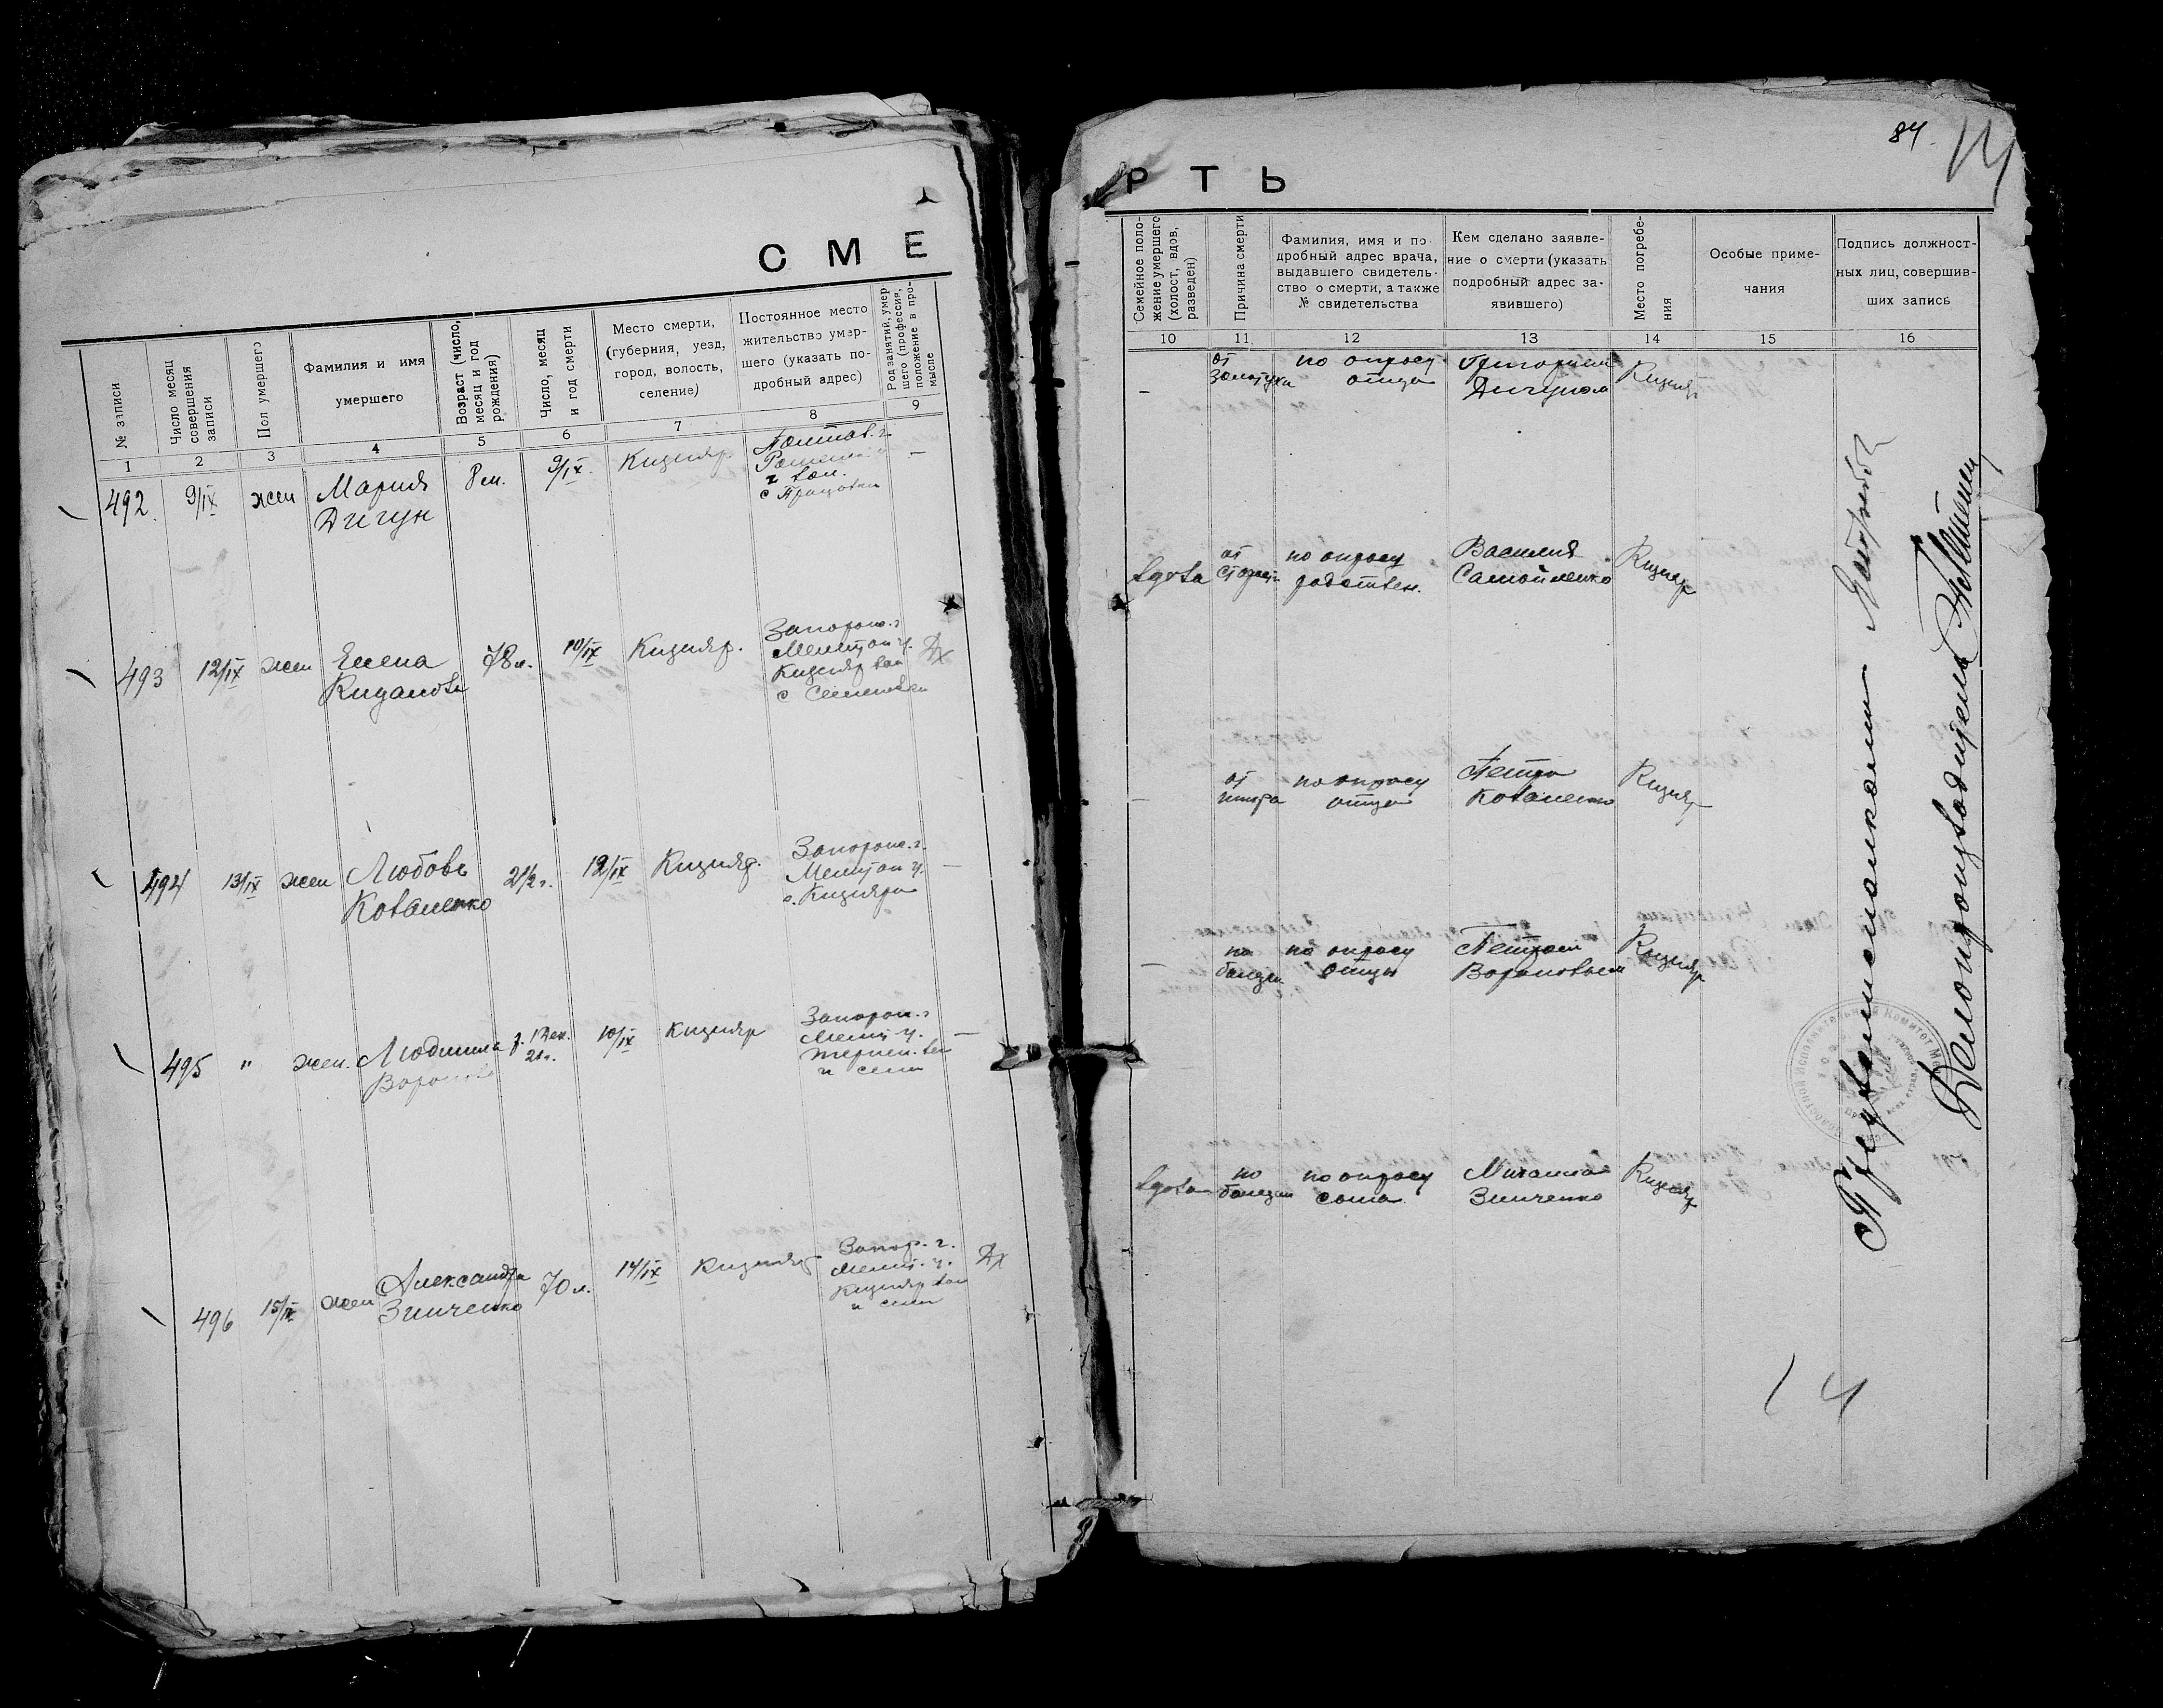 84.
С М Е
Р Т Ь
№ записи
Число месяц
совершения
записи
Пол умершего
Фамилия и имя
умершего
Возраст (число,
месяц и год
рождения)
Число, месяц
и год смерти
Место смерти,
(губерния, уезд,
город, волость,
селение)
Постоянное место
жительство умер-
шего (указать по-
дробный адрес)
Род занятий, умер-
шего (профессия,
положение в про-
мысле
1 2 3 4 5 6 7 8 9
492. 9/IX жен Мария
Дигун
8 м. 9/IX. Кизияр.
Полтав. г.
с
–
493 12/IX жен Елена
78 л. 10/IX Кизияр.
Запорож. г
Мелитоп у.
Кизияр вол
с Семеновки
Дх
494 13/IX жен Любовь
Коваленко
2 1/2 г. 12/IX Кизияр.
Запорож. г.
Мелитоп у.
с. Кизияра
–
495 " жен. Людмила
р. 1 Дек.
21 г.
10/IX Кизияр
Запорож. г
Мелит у.
–
496 15/IX жен Александра
Зинченко
70 л. 14/IX Кизияр
Запор. г.
Мелит. у.
Кизияр вол
и сели
Дх
Семейное поло-
жение умершего
(холост, вдов,
разведен)
Причина смерти
Фамилия, имя и по
дробный адрес врача,
выдавшего свидетель-
ство о смерти, а также
№ свидетельства
Кем сделано заявле-
ние о смерти (указать
подробный адрес за-
явившего)
Место погребе-
ния
Особые приме-
чания
Подпись должност-
ных лиц, совершив-
ших запись
10 11 12 13 14 15 16
–
от
Золотухи
по опросу
отца
Григорием
Дигуном
Кизияр
вдова
от
старости
по опросу
родствен.
Василия
Самойленко
Кизияр
–
от
по опросу
отца
Петра
Коваленко
Кизияр
–
по
болезни
по опросу
отца
Петром
Вороновым
Кизияр
вдова
по
болезни
по опросу
сына
Михаила
Зинченко
Кизияр
Делопроизводитель
14